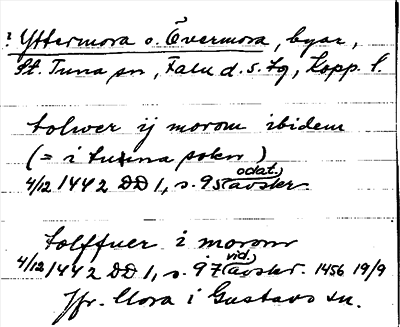 ? Yttermora o. Övermora, byar,
St. Tuna sn, Falu d. s. tg, Kopp. l.
tolwer ij morom ibidem
(= i tuna sokn)
4/12 1442 DD 1, s. 95 (odat. avskr.
tolffuer i morom
4/12 1442 DD 1, s. 97 (vid. avskr. 1456 19/9
Jfr. Mora i Gustavs sn.